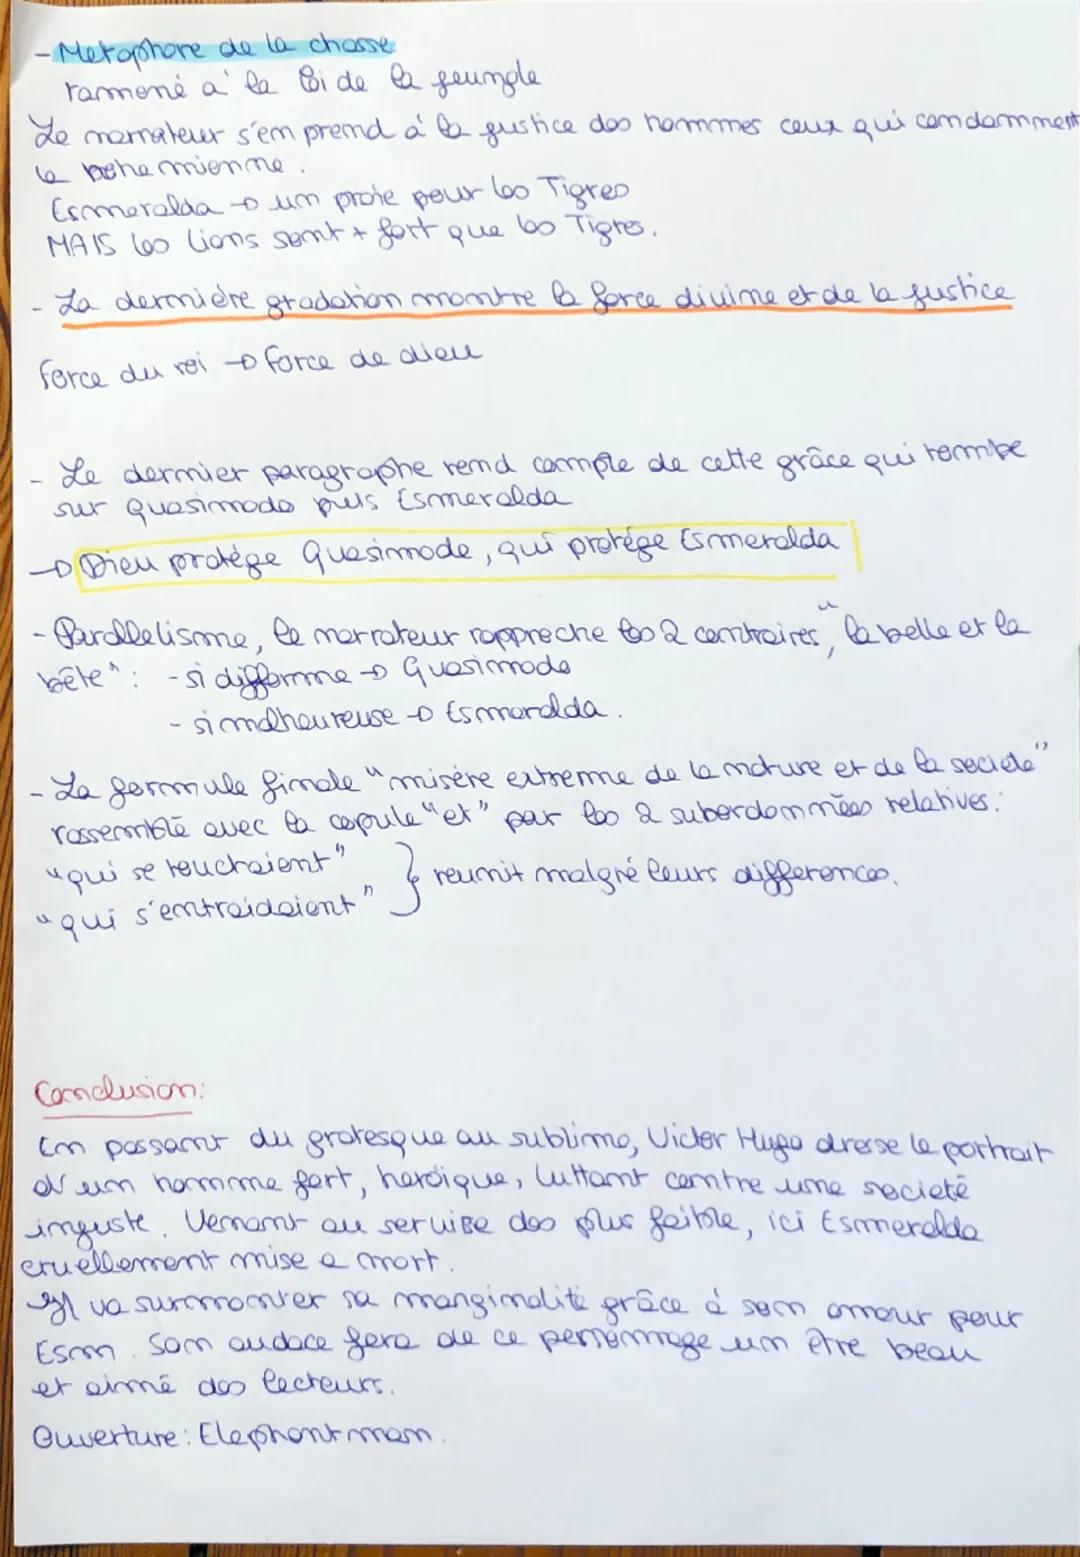 - Metaphore de la chasse
ramené a la loi de la jeungle
Le narrateur s'en prend á la justice des hommes ceux qui condamnent
la bohemienne.
Esmeralda → un proie pour les Tigres
MAIS les lions sont + fort que les Tigres.
- La dernière gradation montre la force divine et de la justice
force du roi → force de dieu
- Le dernier paragraphe rend compte de cette grâce qui tombe
sur Quasimodo puis Esmeralda
→ Dieu protége Quasimodo, qui protége Esmeralda
- Parallelisme, le narrateur rapproche les 2 contraires, "la belle et la
bête": - si difforme → Quasimodo
- si malheureuse → Esmeralda.
- La formule finale "misère extreme de la nature et de la société"
rassemblé avec la copule "et" par les 2 subordonnées relatives:
"qui se touchaient" } reunit malgré leurs differences.
"qui s'entraidaient"
Conclusion:
En passant du grotesque au sublime, Victor Hugo dresse le portrait
d'un homme fort, heroïque, luttant contre une societé
injuste. Venant au service des plus faible, ici Esmeralda
cruellement mise a mort.
Il va surmonter sa marginalité grâce á son amour pour
Esm. Son audace fera de ce personnage un être beau
et aimé des lecteurs.
Ouverture: Elephant man.